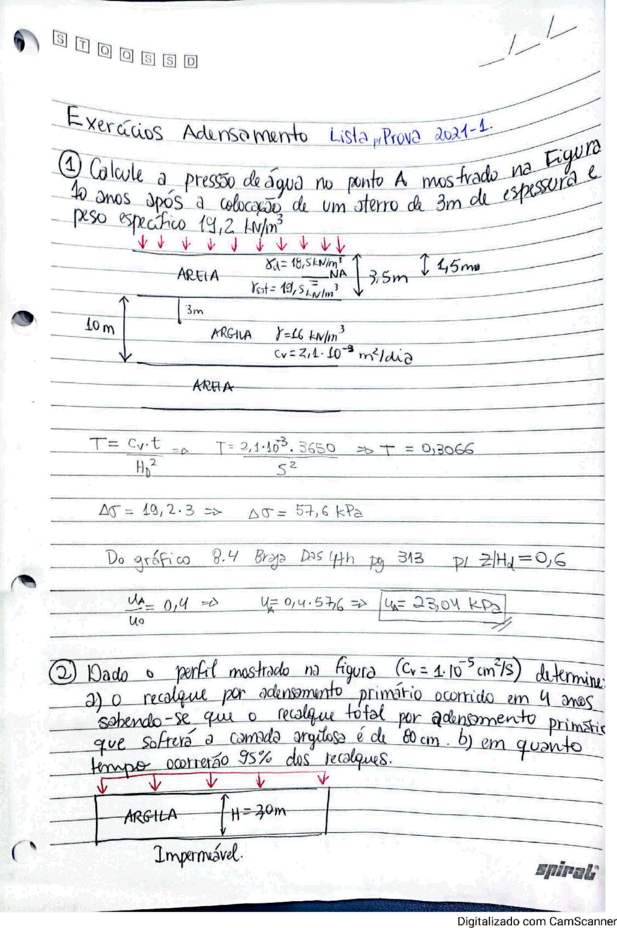 S T Q Q S S D
Exercícios Adensamento Lista p/ Prova 2021-1.
① Calcule a pressão de água no ponto A mostrado na Figura
10 anos após a colocação de um aterro de 3m de espessura e
peso específico 19,2 kN/m³
AREIA γd = 18,5 kN/m³ 3,5m 1,5m
NA
γsat = 19,5 kN/m³
3m
10m ARGILA γ=16 kN/m³
cv = 2,1·10⁻³ m²/dia
AREIA
T = cv·t / Hd² => T = 2,1·10⁻³·3650 / 5² => T = 0,3066
Δσ = 19,2·3 => Δσ = 57,6 kPa
Do gráfico 8.4 Braja Das 4th pg 313 p/ z/Hd = 0,6
uA/u0 = 0,4 => uA = 0,4·57,6 => uA = 23,04 kPa
② Dado o perfil mostrado na figura (Cv = 1·10⁻⁵ cm²/s) determine:
a) o recalque por adensamento primário ocorrido em 4 anos
sabendo-se que o recalque total por adensamento primário
que sofrerá a camada argilosa é de 80 cm. b) em quanto
tempo ocorrerão 95% dos recalques.
ARGILA H = 30m
Impermeável.
spiral
Digitalizado com CamScanner